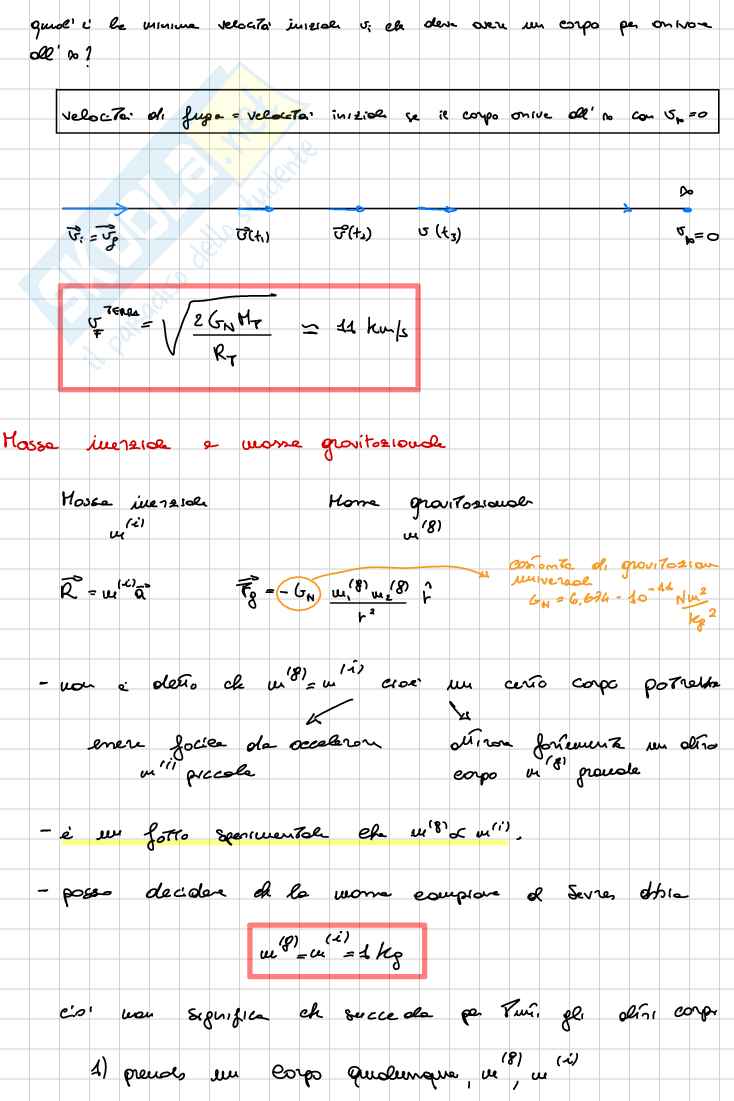 qual'è la minima velocità iniziale vᵢ che deve avere un corpo per arrivare
all' ∞?
velocità di fuga = velocità iniziale se il corpo arriva all' ∞ con v∞=0
SKUOLA.net
il paradiso dello studente
∞
v⃗ᵢ = v⃗f v⃗(t₁) v⃗(t₂) v(t₃) v∞=0
v_F^TERRA = √(2 G_N M_T / R_T) ≃ 11 km/s
Massa inerziale e massa gravitazionale
Massa inerziale Massa gravitazionale
m⁽ⁱ⁾ m⁽ᵍ⁾
costante di gravitazione
universale
R⃗ = m⁽ⁱ⁾a⃗ F⃗g = -G_N m₁⁽ᵍ⁾m₂⁽ᵍ⁾ / r² r̂ G_N = 6,674 · 10⁻¹¹ Nm²/kg²
- non è detto che m⁽ᵍ⁾=m⁽ⁱ⁾ cioè un certo corpo potrebbe
essere facile da accelerare attirare fortemente un altro
m⁽ⁱ⁾ piccola corpo m⁽ᵍ⁾ grande
- è un fatto sperimentale che m⁽ᵍ⁾ ∝ m⁽ⁱ⁾.
- posso decidere che la massa campione di Sevres abbia
m⁽ᵍ⁾=m⁽ⁱ⁾=1 kg
ciò non significa che succeda per tutti gli altri corpi
1) prendo un corpo qualunque, m⁽ᵍ⁾, m⁽ⁱ⁾